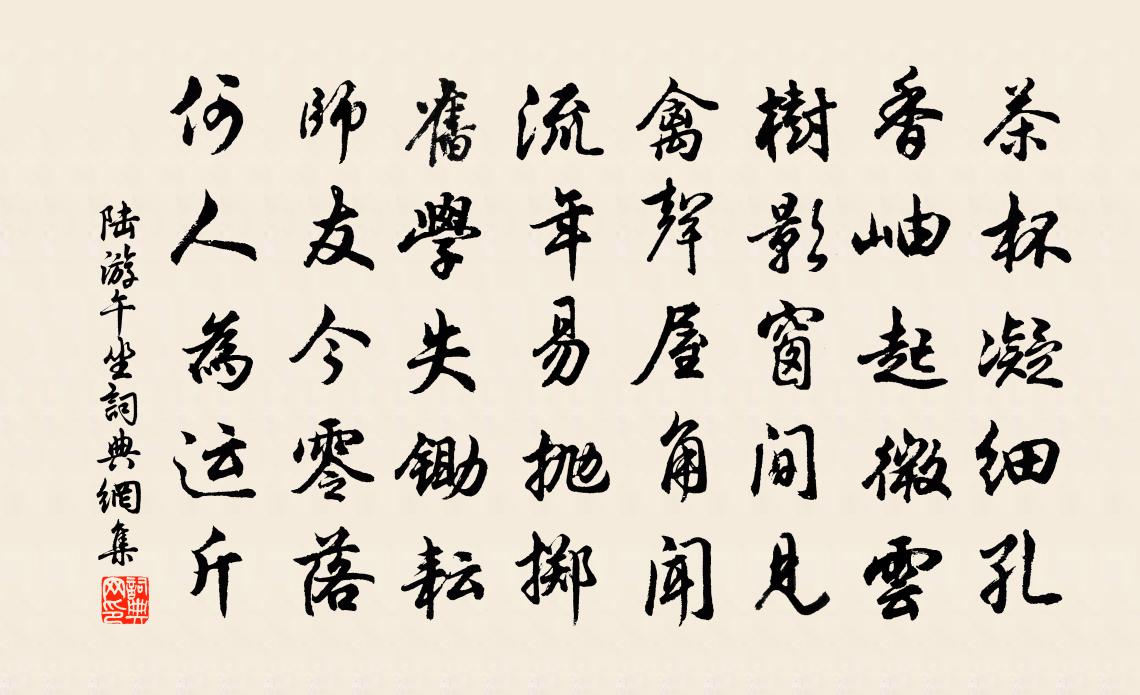 茶杯凝細孔
香岫起微雲
樹影窗間見
禽聲屋角聞
流年易抛掷
舊學失鋤耘
師友今零落
何人為运斤
陆游午坐詞典網集
詞典网印